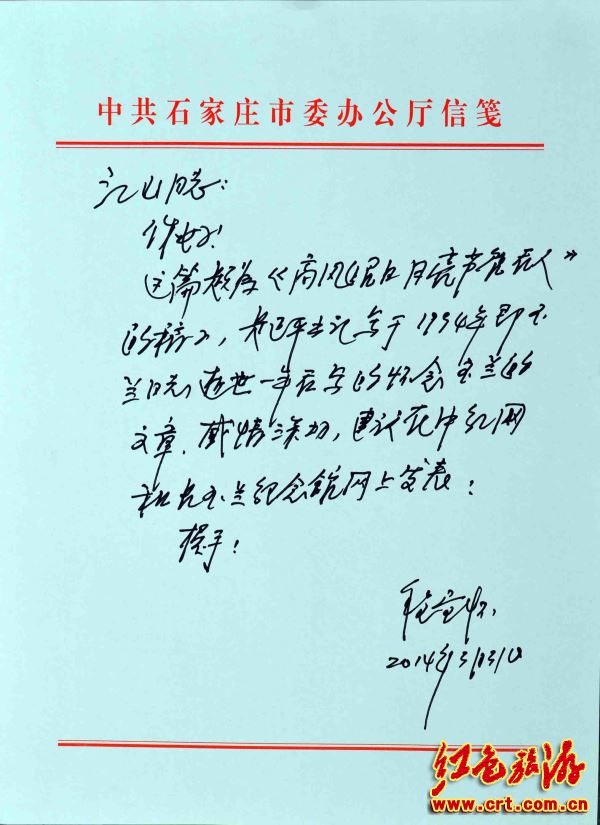 中共石家庄市委办公厅信笺
江山同志:
你好!
这篇题为《高风
的稿子,是 写于1994年即玉
兰同志逝世一年后写的怀念玉兰的
文章,感情深切,建议在中红网
和 玉兰纪念馆网上发表!
握手!
2014年3月
红色旅游
www.crt.com.cn